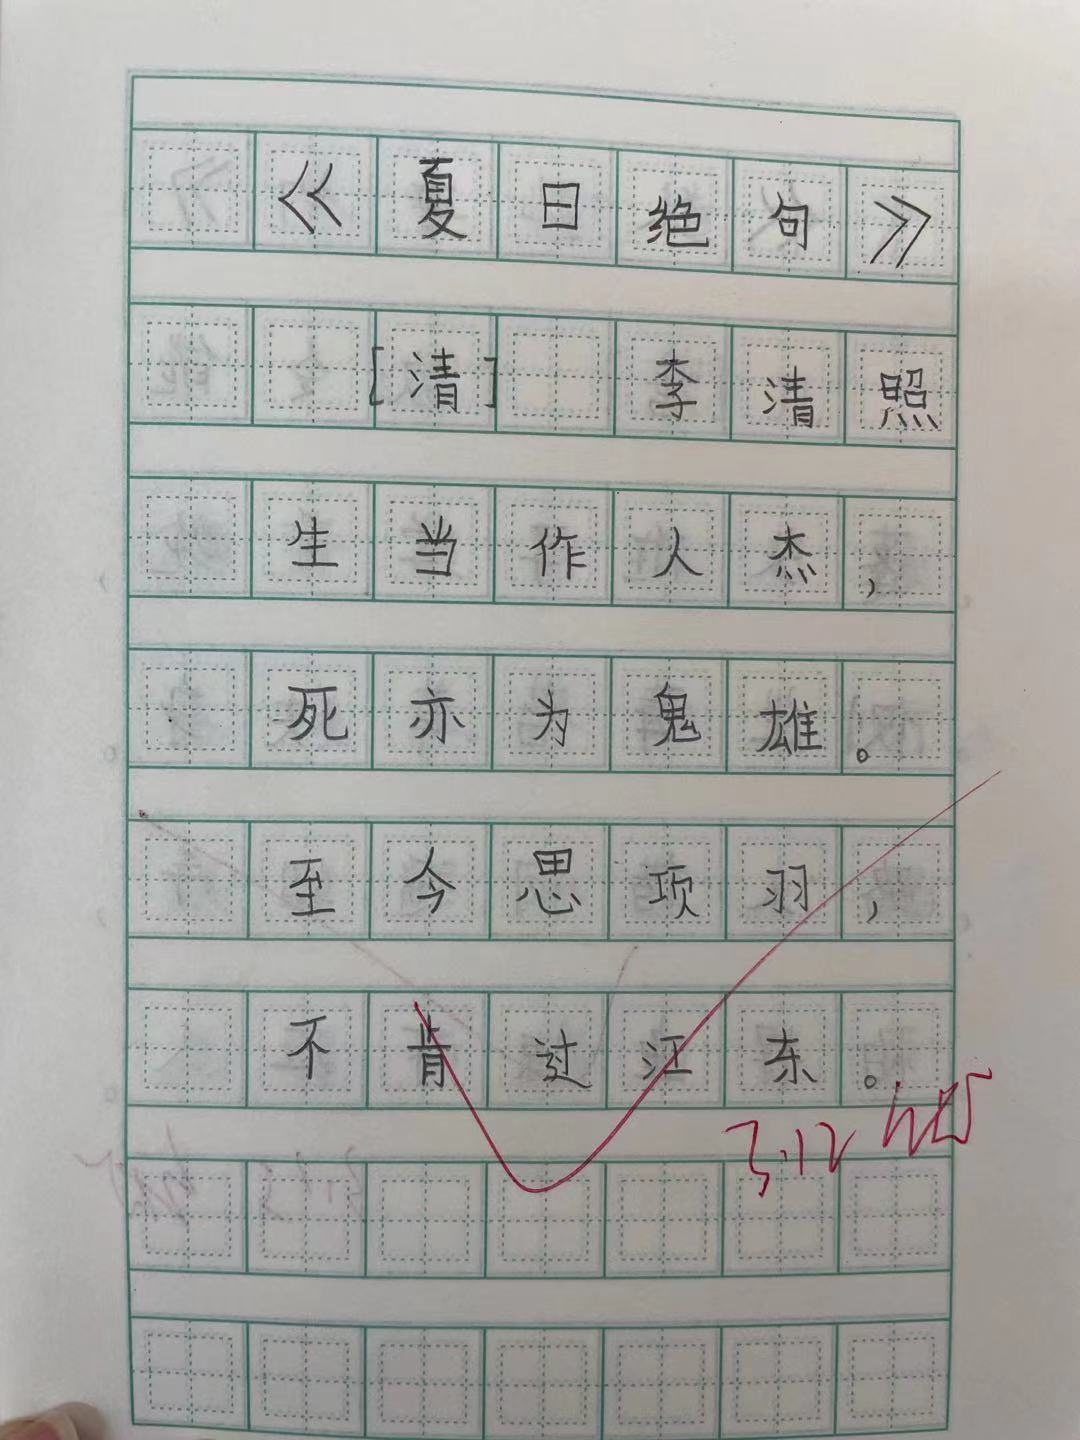 《夏日绝句》
[清] 李清照
生当作人杰，
死亦为鬼雄。
至今思项羽，
不肯过江东。
3.12